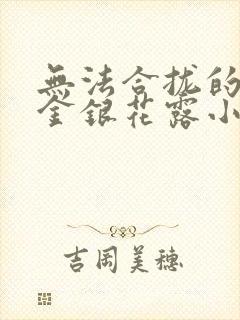 無法合拢的
金銀花露小
吉岡美穗